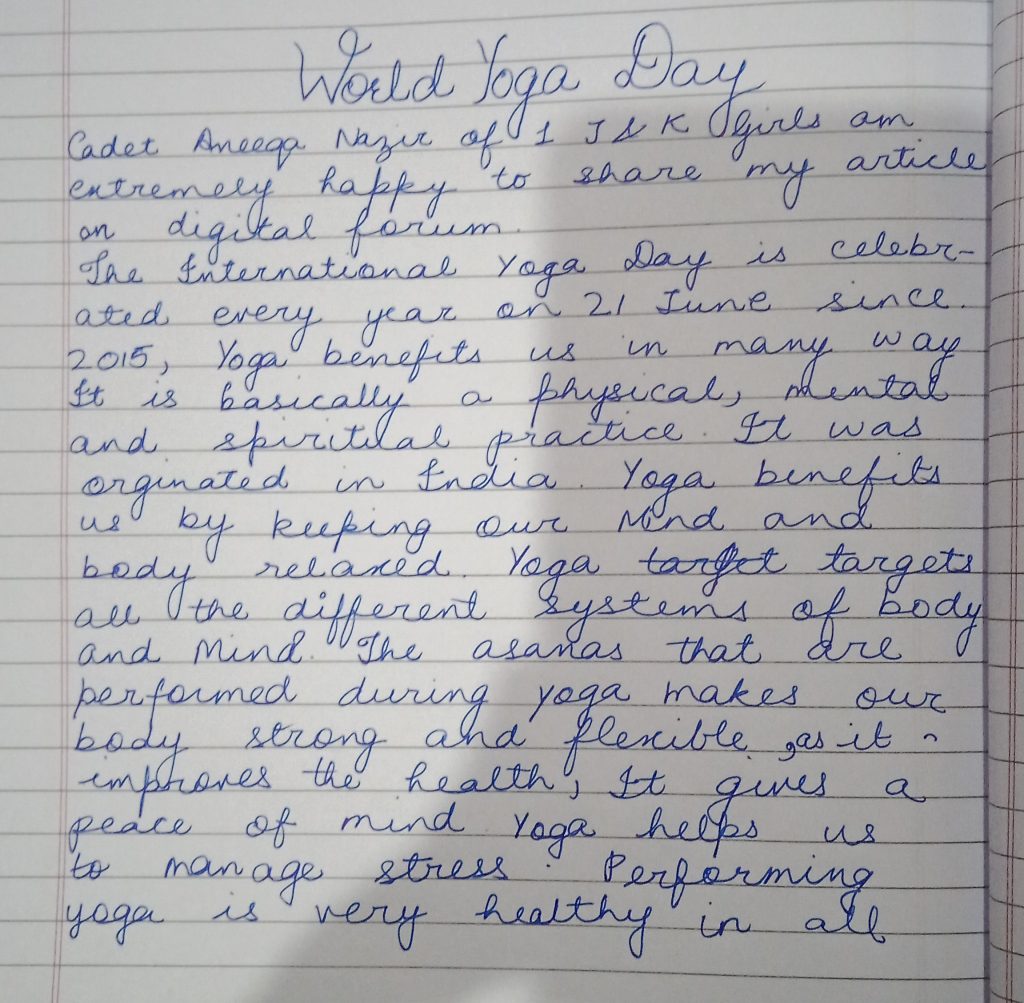 World Yoga Day
Cadet Aneeqa Nazir of 1 J & K Girls am
extremely happy to share my article
on digital forum.
The International Yoga Day is celebr-
ated every year on 21 June since.
2015, Yoga benefits us in many way
It is basically a physical, mental
and spiritual practice. It was
orginated in India. Yoga benefits
us by keeping our Mind and
body relaxed. Yoga targets
all the different systems of body
and Mind. The asanas that are
performed during yoga makes our
body strong and flexible, as it
improves the health, It gives a
peace of mind Yoga helps us
to manage stress. Performing
yoga is very healthy in all